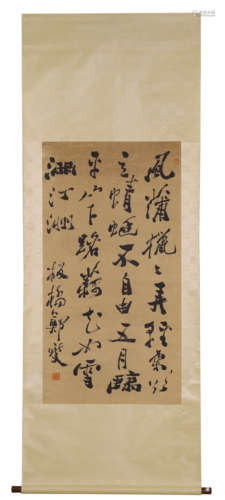 風蒲獵々弄輕柔欲
立蜻蜓不自由五月臨
平山下路藕花如雪
滿汀洲 板橋鄭燮